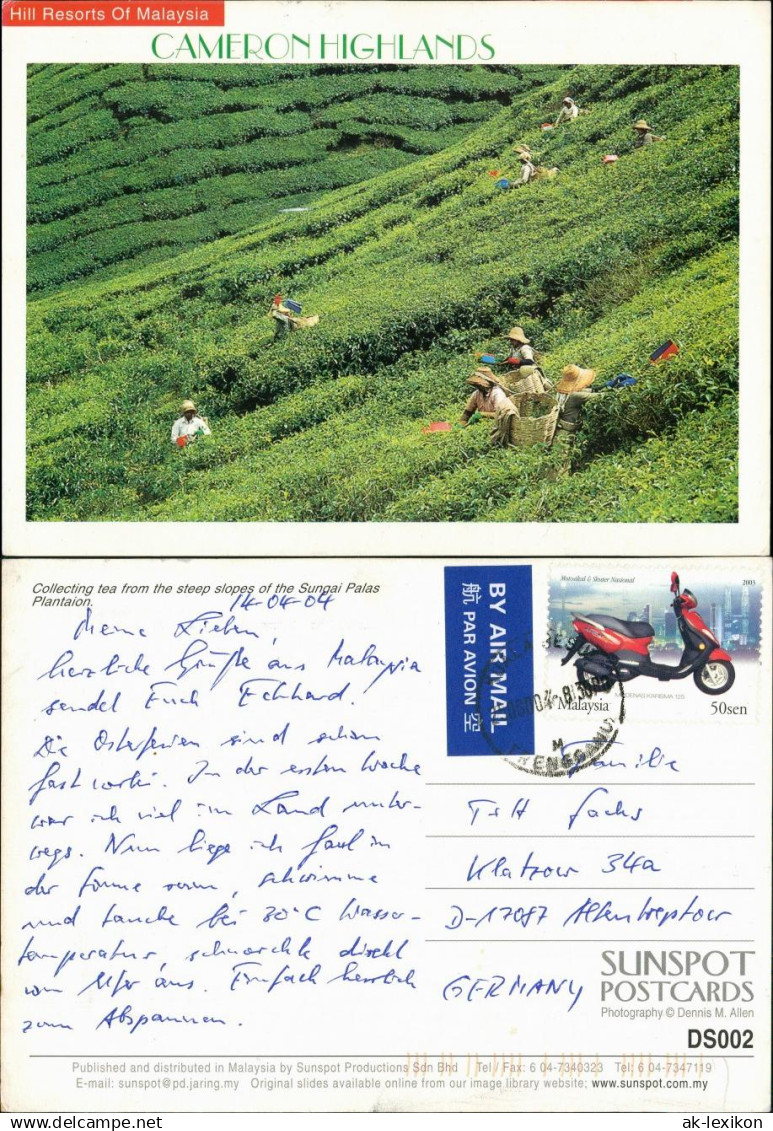 Hill Resorts Of Malaysia
CAMERON HIGHLANDS
Collecting tea from the steep slopes of the Sungai Palas
Plantaion.
14-04-04
Meine Lieben,
herzliche Grüße aus Malaysia
sendet Euch Eckhard.
Die Osterferien sind schon
fast vorbei. In der ersten Woche
war ich viel im Land unter-
wegs. Nun liege ich faul in
der Sonne rum, schwimme
und tauche bei 30°C Wasser-
temperatur, schnorchle direkt
vom Ufer aus. Einfach herrlich
zum Abspannen.
BY AIR MAIL
PAR AVION
航空
Motosikal & Skuter Nasional
2003
MODENAS KARISMA 125
Malaysia
50sen
TERENGGANU
Familie
T+H Sachs
Klatzow 34a
D-17087 Altentreptow
GERMANY
SUNSPOT
POSTCARDS
Photography © Dennis M. Allen
DS002
Published and distributed in Malaysia by Sunspot Productions Sdn Bhd Tel / Fax: 6 04-7340323 Tel: 6 04-7347119
E-mail: sunspot@pd.jaring.my Original slides available online from our image library website; www.sunspot.com.my
delcampe.net
ak-lexikon